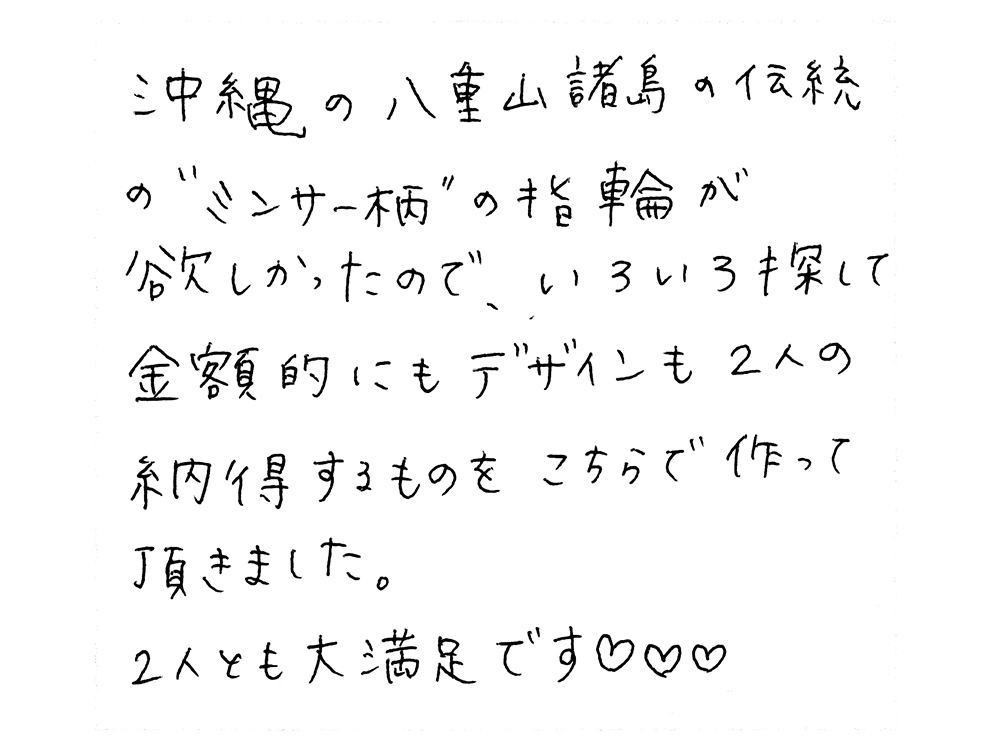 沖縄の八重山諸島の伝統
の"ミンサー柄"の指輪が
欲しかったので、いろいろ探して
金額的にもデザインも2人の
納得するものをこちらで作って
頂きました。
2人とも大満足です♡♡♡